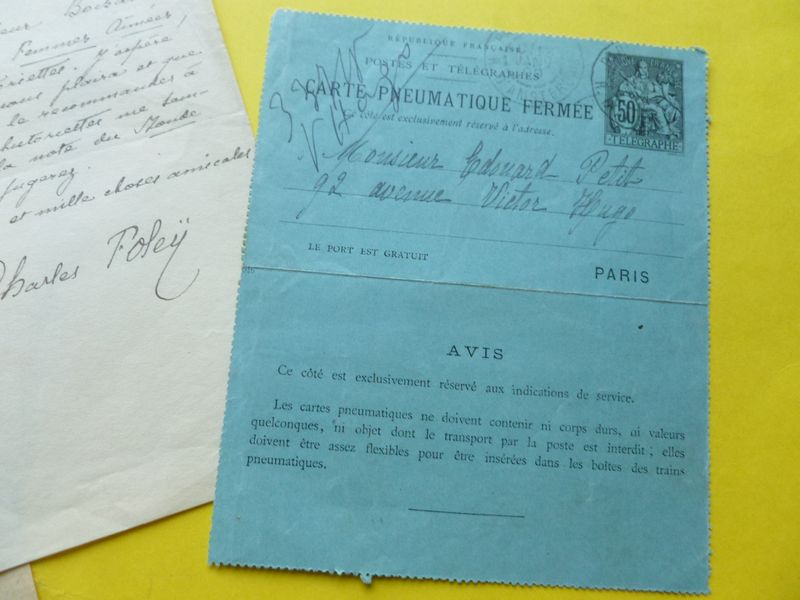 Femmes Aimées
plaira et que
le recommandez à
historiettes me sem-
la note du Monde
jugerez.
et mille choses amicales
Charles Foleÿ
RÉPUBLIQUE FRANÇAISE
POSTES ET TÉLÉGRAPHES
CARTE PNEUMATIQUE FERMÉE
Ce côté est exclusivement réservé à l'adresse.
50
TÉLÉGRAPHE
Monsieur Edouard Petit
92 avenue Victor Hugo
LE PORT EST GRATUIT
PARIS
AVIS
Ce côté est exclusivement réservé aux indications de service.
Les cartes pneumatiques ne doivent contenir ni corps durs, ni valeurs
quelconques, ni objet dont le transport par la poste est interdit ; elles
doivent être assez flexibles pour être insérées dans les boîtes des trains
pneumatiques.